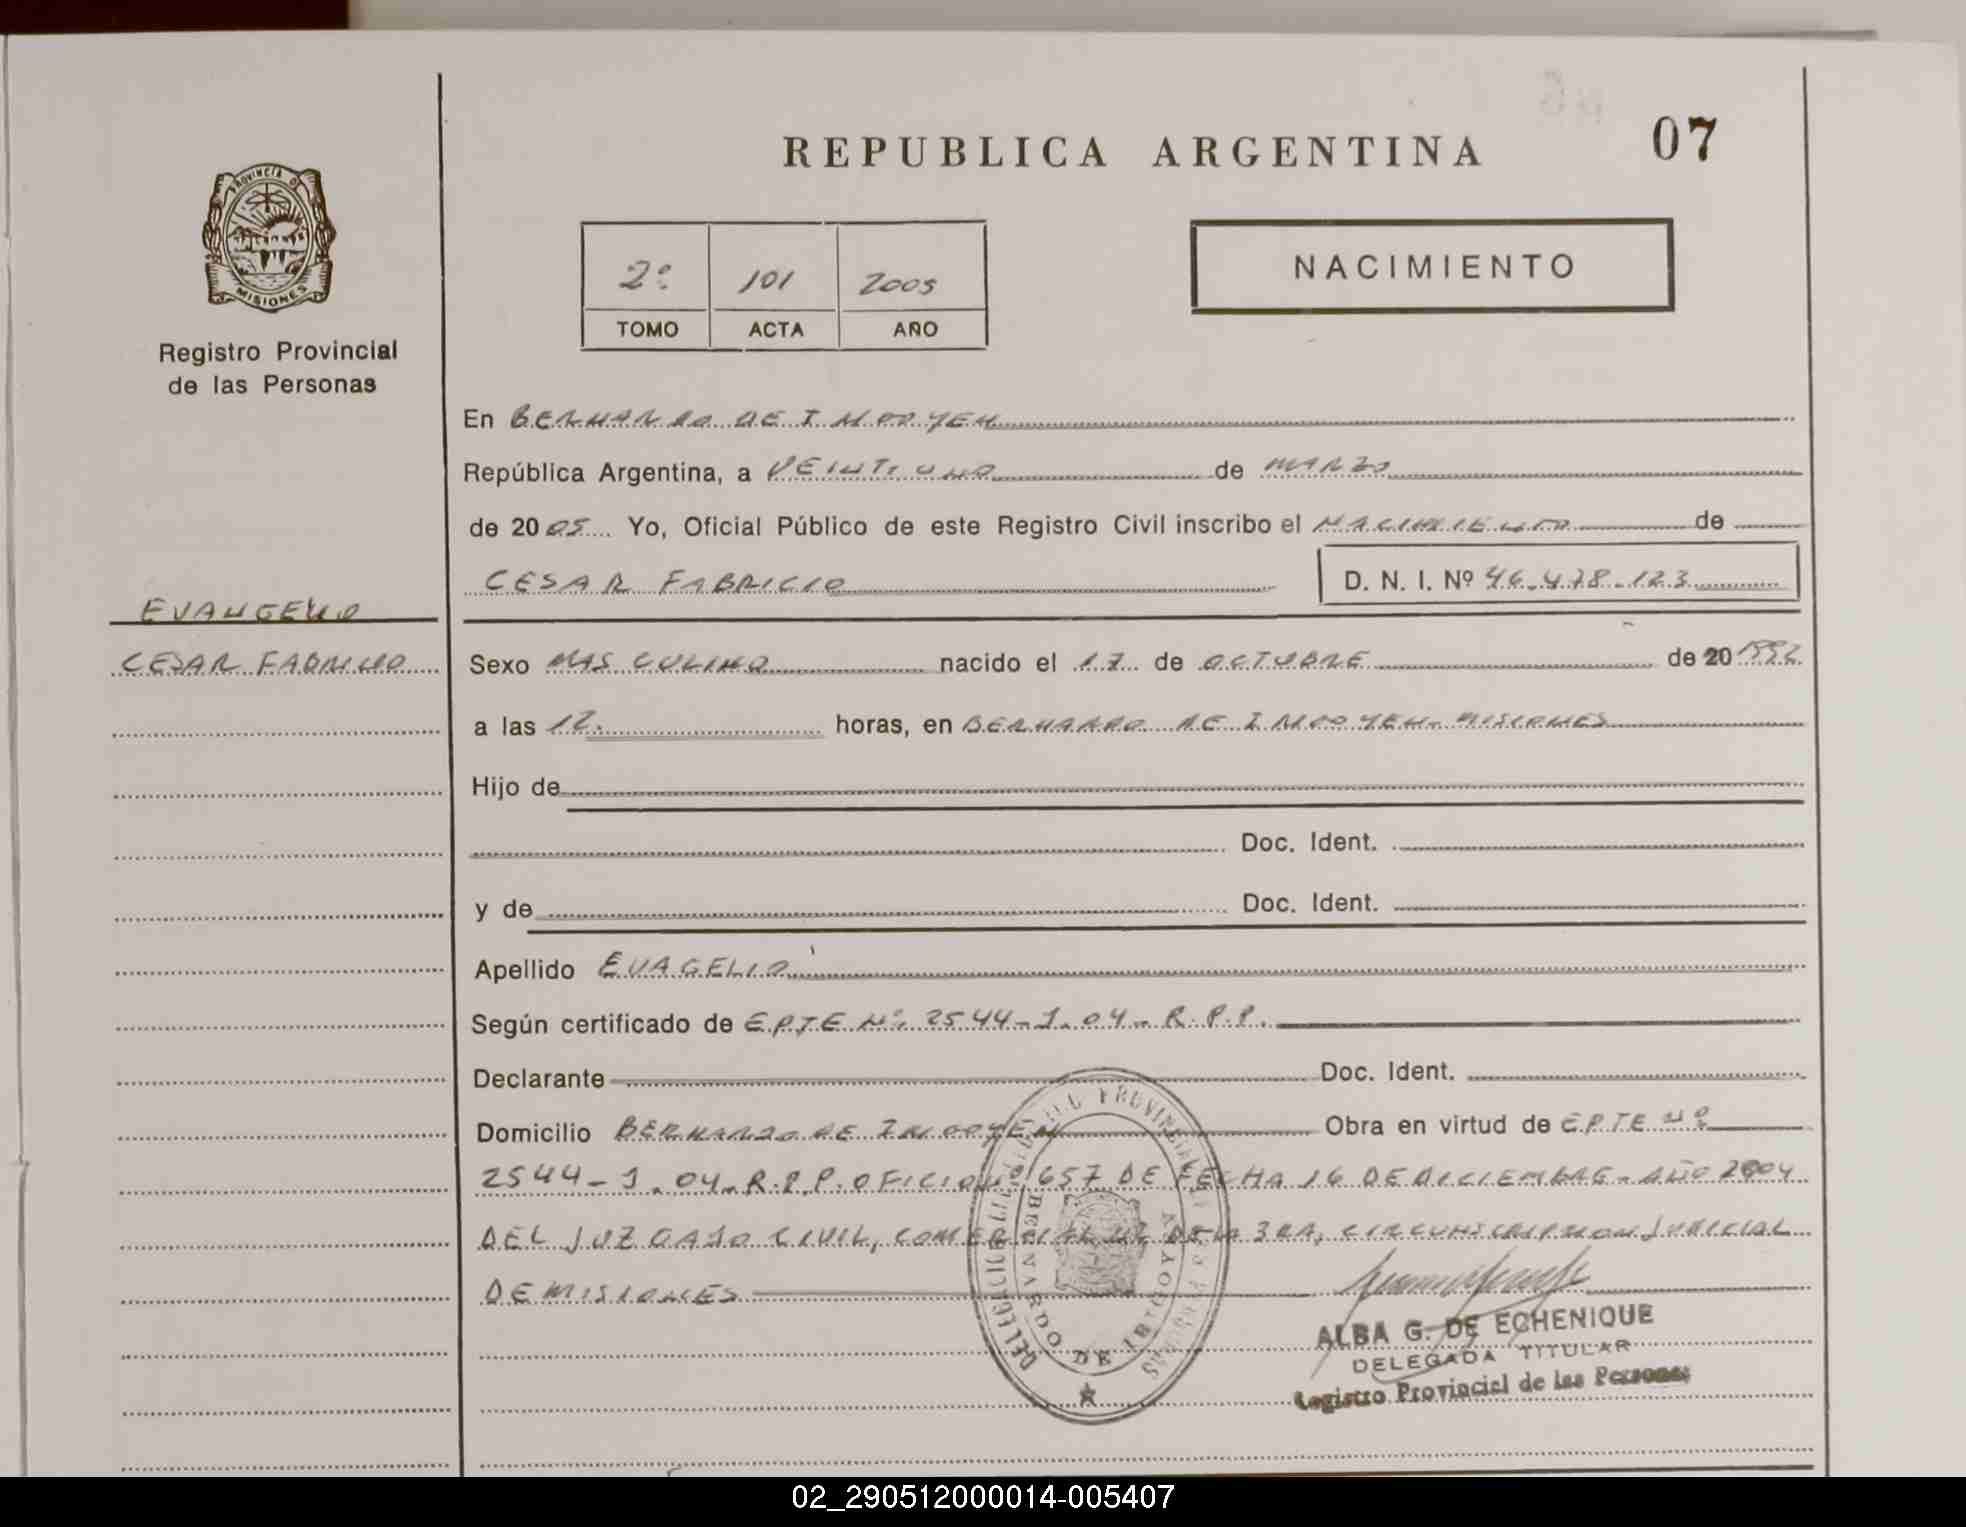 07
REPUBLICA ARGENTINA
PROVINCIA DE
MISIONES
Registro Provincial
de las Personas
2º 101 2005
TOMO ACTA AÑO
NACIMIENTO
En BERNARDO DE IRIGOYEN
República Argentina, a VEINTIUNO de MARZO
de 2005 Yo, Oficial Público de este Registro Civil inscribo el NACIMIENTO de
CESAR FABRICIO D. N. I. Nº 46.478.123
EVANGELIO
CESAR FABRICIO
Sexo MASCULINO nacido el 17 de OCTUBRE de 20 1992
a las 12. horas, en BERNARDO DE IRIGOYEN-MISIONES
Hijo de
Doc. Ident.
y de Doc. Ident.
Apellido EVAGELIO
Según certificado de EPTE Nº. 2544-J.04-R.P.P.
Declarante Doc. Ident.
Domicilio BERNARDO DE IRIGOYEN Obra en virtud de EPTE Nº
2544-J.04-R.P.P. OFICIO 1657 DE FECHA 16 DE DICIEMBRE-AÑO 2004
DEL JUZGADO CIVIL, COMERCIAL DE LA 3RA, CIRCUNSCRIPCION JUDICIAL
DE MISIONES
BERNARDO DE IRIGOYEN
ALBA G. DE ECHENIQUE
DELEGADA TITULAR
Registro Provincial de las Personas
02_290512000014-005407